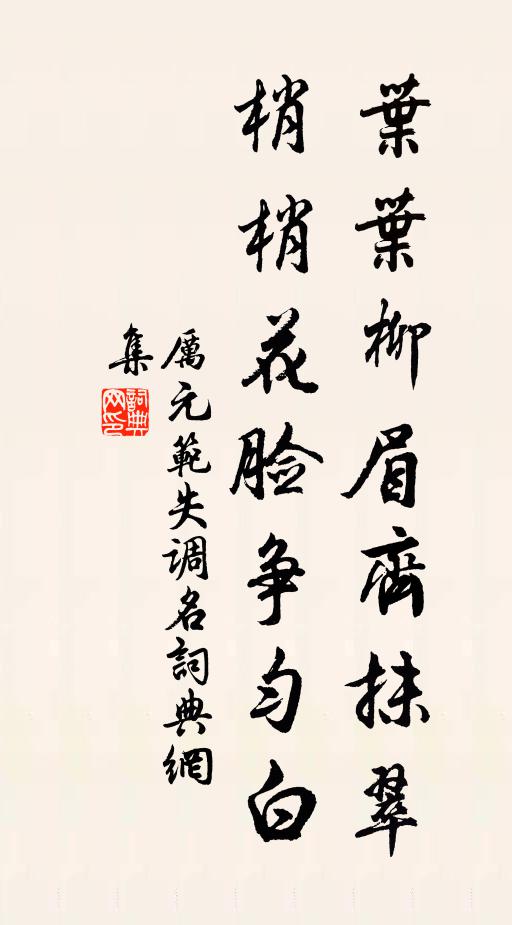 葉葉柳眉齊抹翠
梢梢花脸争匀白
厲元範失调名詞典網
集
詞典
网印